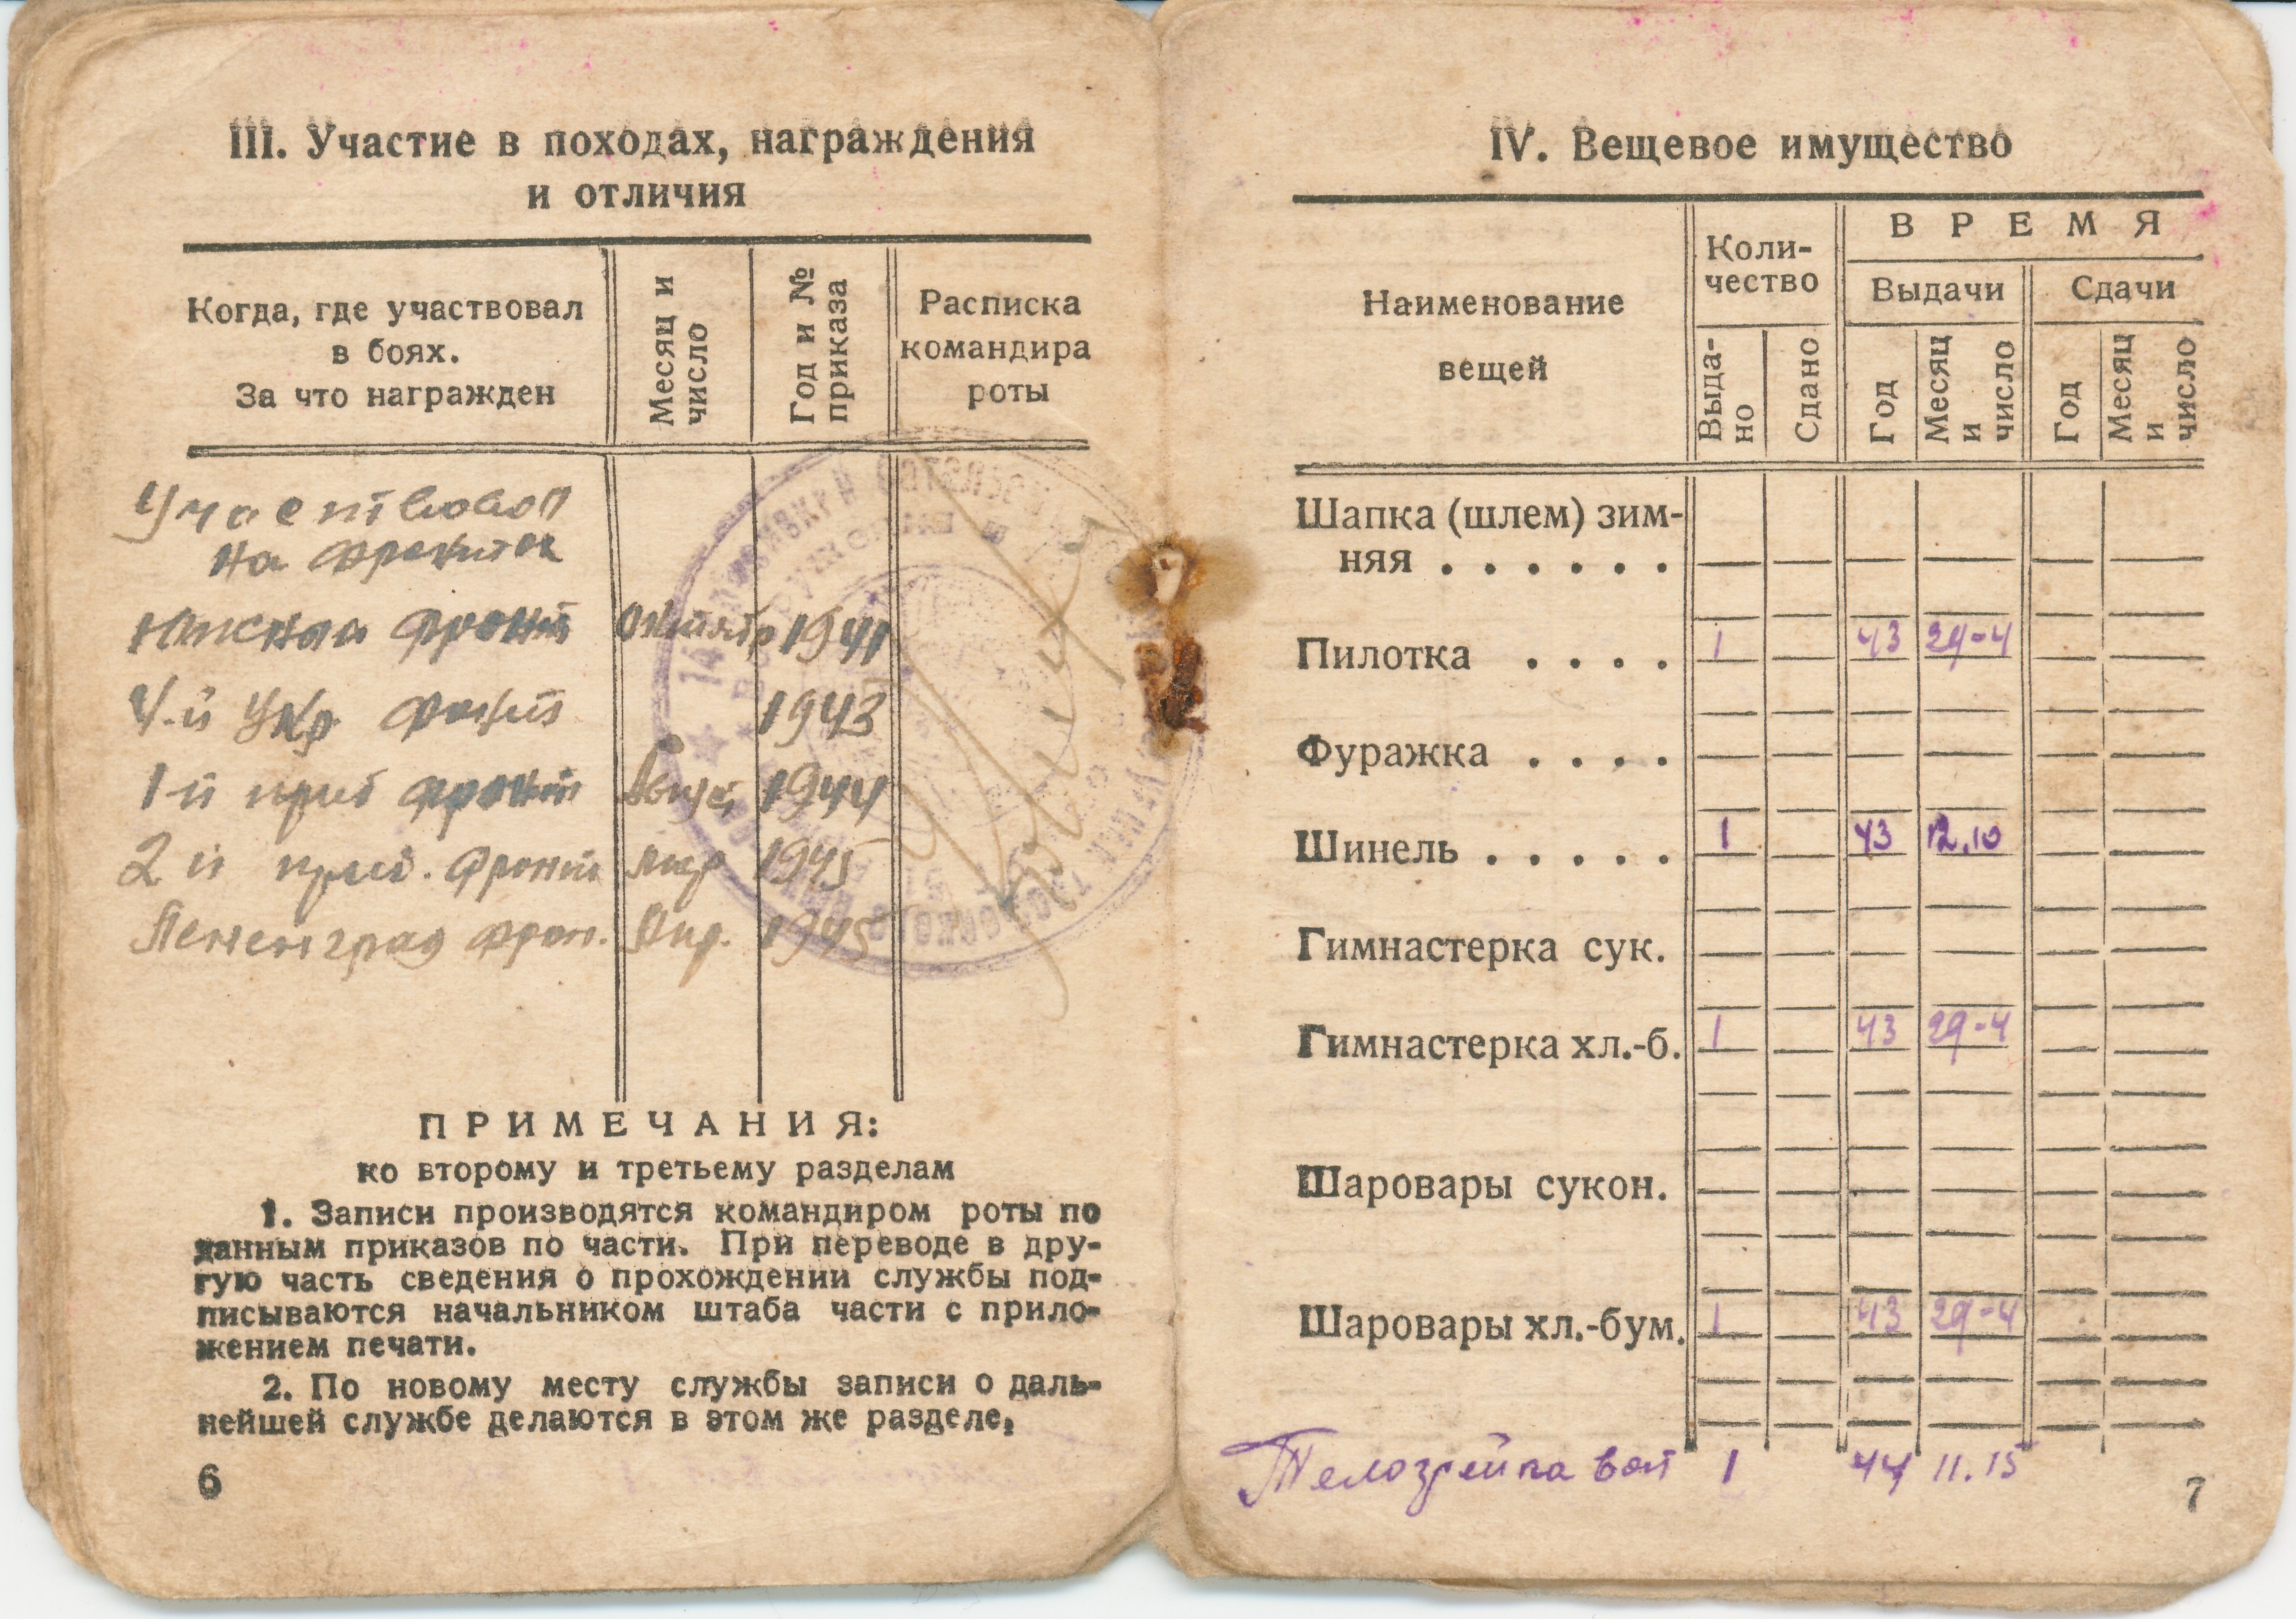 III. Участие в походах, награждения
и отличия
Когда, где участвовал
в боях.
За что награжден
Месяц и
число
Год и №
приказа
Расписка
командира
роты
Участвовал
на фронтах
Южный фронт Октябр 1941
4-й Укр фронт 1943
1-й приб фронт Август 1944
2 й приб. фронт 1945
Ленинград фрон. Апр. 1945
ПРИМЕЧАНИЯ:
ко второму и третьему разделам
1. Записи производятся командиром роты по
данным приказов по части. При переводе в дру-
гую часть сведения о прохождении службы под-
писываются начальником штаба части с прило-
жением печати.
2. По новому месту службы записи о даль-
нейшей службе делаются в этом же разделе,
6
IV. Вещевое имущество
Наименование
вещей
Коли-
чество
ВРЕМЯ
Выдачи
Сдачи
Выда-
но
Сдано
Год
Месяц
и
число
Год
Месяц
и
число
Шапка (шлем) зим-
няя . . . . . .
Пилотка . . . . 1 43 29-4
Фуражка . . . .
Шинель . . . . . 1 43 12.10
Гимнастерка сук.
Гимнастерка хл.-б. 1 43 29-4
Шаровары сукон.
Шаровары хл.-бум. 1 43 29-4
Телогрейка ват 1 44 11.15
7